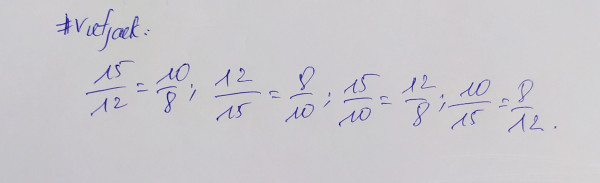 #Vietjack:
15/12 = 10/8; 12/15 = 8/10; 15/10 = 12/8; 10/15 = 8/12.